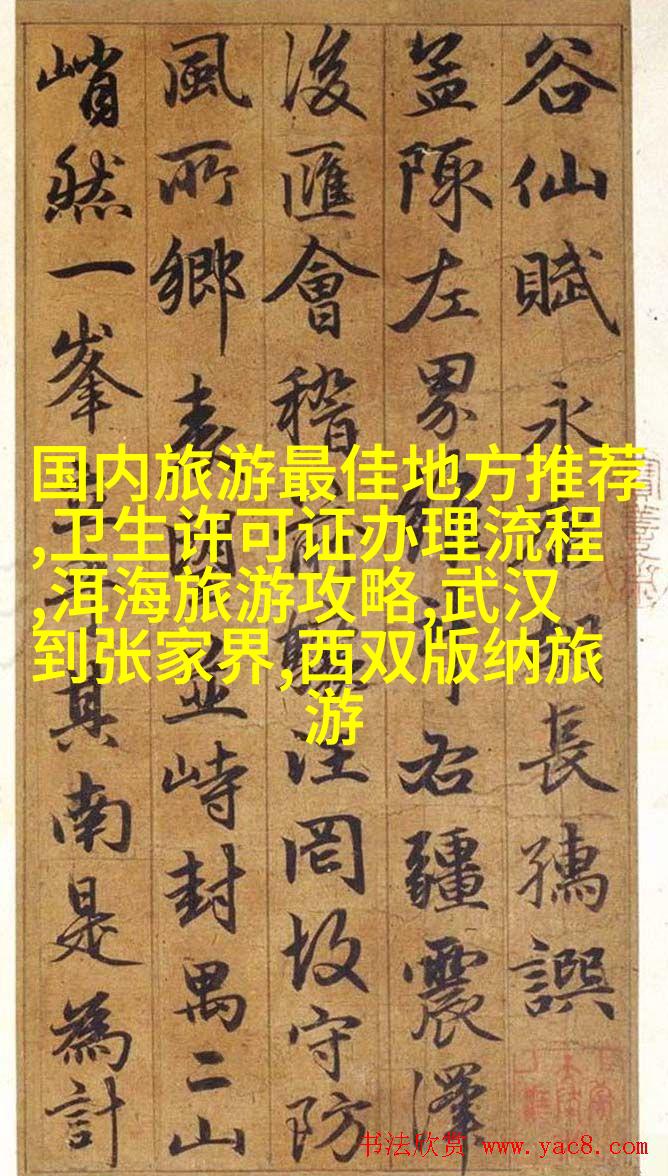 谷仙賦 永 長孺譔
陳左界 右疆震澤
後匯會稽前騖汪罔故守防
風所鄉表闕並峙封禺二山
峭然一峯 其南是為計
国内旅游最佳地方推荐
,卫生许可证办理流程
,洱海旅游攻略,武汉
到张家界,西双版纳旅
游
书法欣赏 www.yac8.com